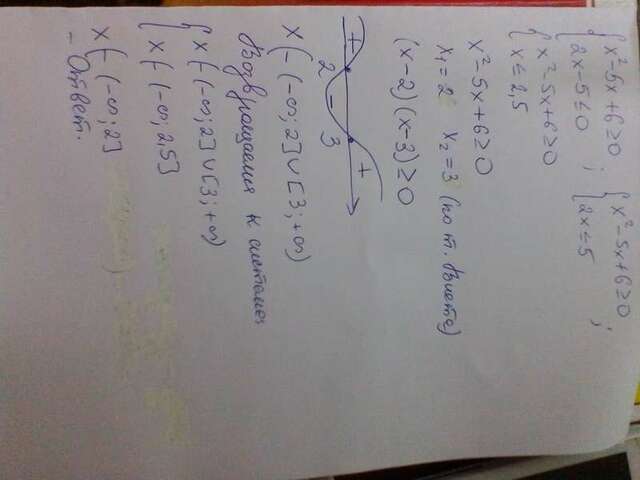 {x²-5x+6≥0 ; {x²-5x+6≥0 ;
{2x-5≤0 {2x≤5
{x²-5x+6≥0
{x≤2,5
x²-5x+6≥0
x₁=2 x₂=3 (по т. Виета)
(x-2)(x-3)≥0
+ - +
2 3
x ∈ (-∞; 2]∪[3; +∞)
Возвращаемся к системе:
{x ∈ (-∞; 2]∪[3; +∞)
{x ∈ (-∞; 2,5]
x ∈ (-∞; 2]
- Ответ.